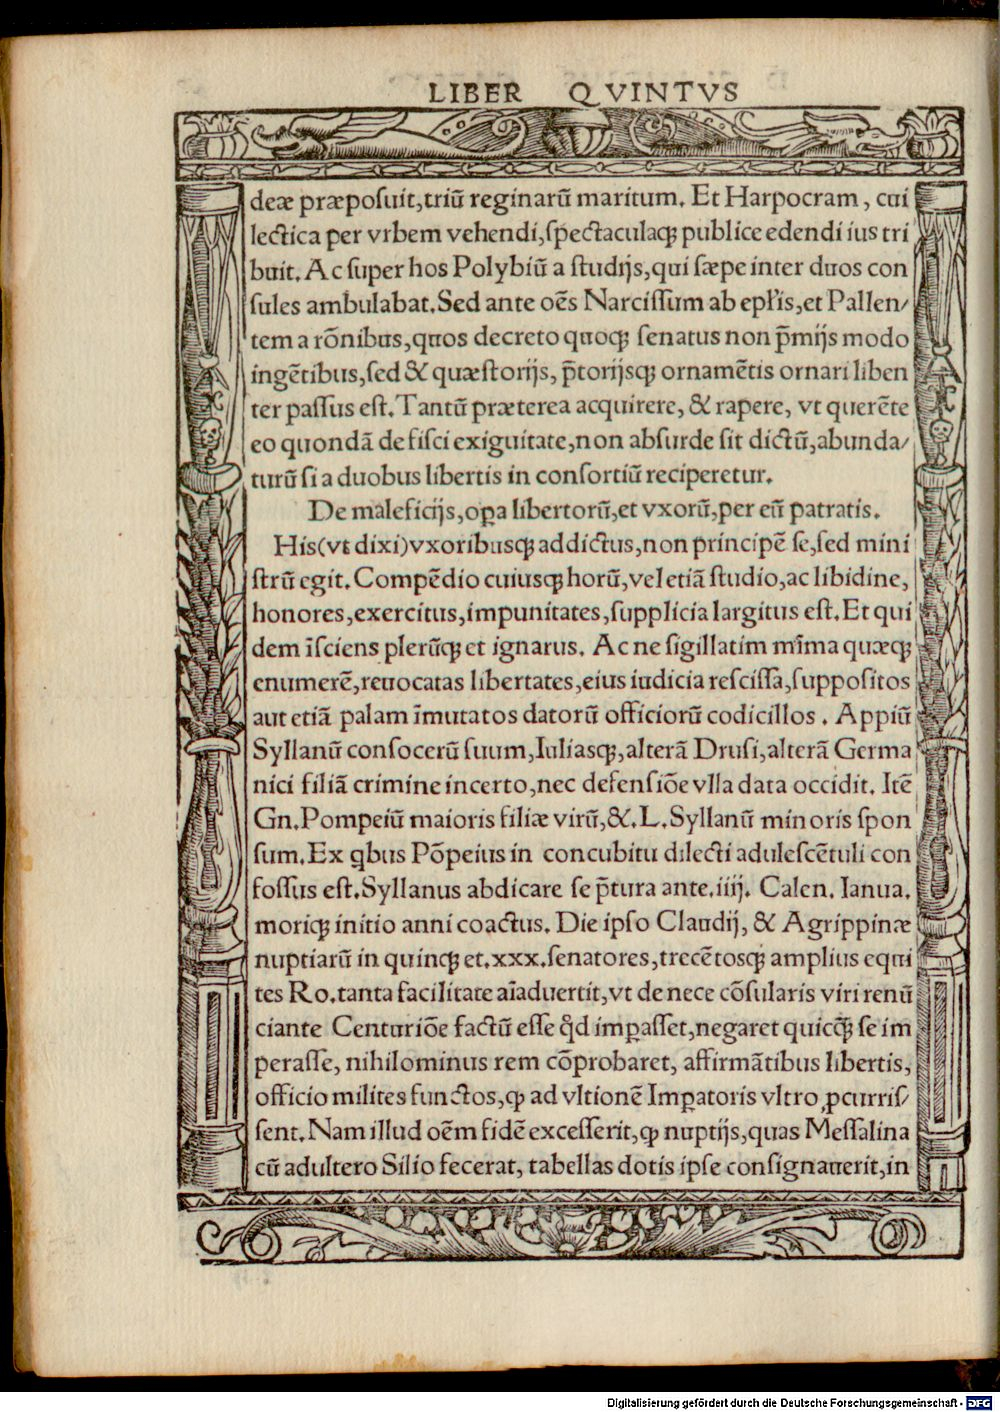 LIBER QVINTVS
deæ præposuit,triũ reginarũ maritum. Et Harpocram, cui
lectica per vrbem vehendi,spectaculaqꝫ publice edendi ius tri
buit. Ac super hos Polybiũ a studijs,qui sæpe inter duos con
sules ambulabat.Sed ante oẽs Narcissum ab epl̃is,et Pallen/
tem a rõnibus,quos decreto quoqꝫ senatus non p̃mijs modo
ingẽtibus,sed & quæstorijs, p̃torijsqꝫ ornamẽtis ornari liben
ter passus est.Tantũ præterea acquirere, & rapere, vt querẽte
eo quondã de fisci exiguitate,non absurde sit dictũ,abunda/
turũ si a duobus libertis in consortiũ reciperetur.
De maleficijs,oꝑa libertorũ,et vxorũ,per eũ patratis.
His(vt dixi)vxoribusqꝫ addictus,non principẽ se,sed mini
strũ egit. Compẽdio cuiusqꝫ horũ,vel etiã studio,ac libidine,
honores,exercitus,impunitates,supplicia largitus est.Et qui
dem ĩsciens plerũqꝫ et ignarus. Ac ne sigillatim mĩma quæqꝫ
enumerẽ,reuocatas libertates,eius iudicia rescissa,suppositos
aut etiã palam ĩmutatos datorũ officiorũ codicillos. Appiũ
Syllanũ consocerũ suum,Iuliasqꝫ,alterã Drusi,alterã Germa
nici filiã crimine incerto,nec defensiõe vlla data occidit. Itẽ
Gn.Pompeiũ maioris filiæ virũ,&.L.Syllanũ minoris spon
sum.Ex qͥbus Põpeius in concubitu dilecti adulescẽtuli con
fossus est.Syllanus abdicare se p̃tura ante.iiij. Calen. Ianua.
moriqꝫ initio anni coactus. Die ipso Claudij, & Agrippinæ
nuptiarũ in quinqꝫ et.xxx.senatores,trecẽtosqꝫ amplius equi
tes Ro.tanta facilitate aĩaduertit,vt de nece cõsularis viri renũ
ciante Centuriõe factũ esse qͥd imꝑasset,negaret quicq̃ꝫ se im
perasse, nihilominus rem cõprobaret, affirmãtibus libertis,
officio milites functos,ꝙ ad vltionẽ Imꝑatoris vltro ꝓcurris/
sent.Nam illud oẽm fidẽ excesserit,ꝙ nuptijs,quas Messalina
cũ adultero Silio fecerat, tabellas dotis ipse consignauerit,in
Digitalisierung gefördert durch die Deutsche Forschungsgemeinschaft - DFG